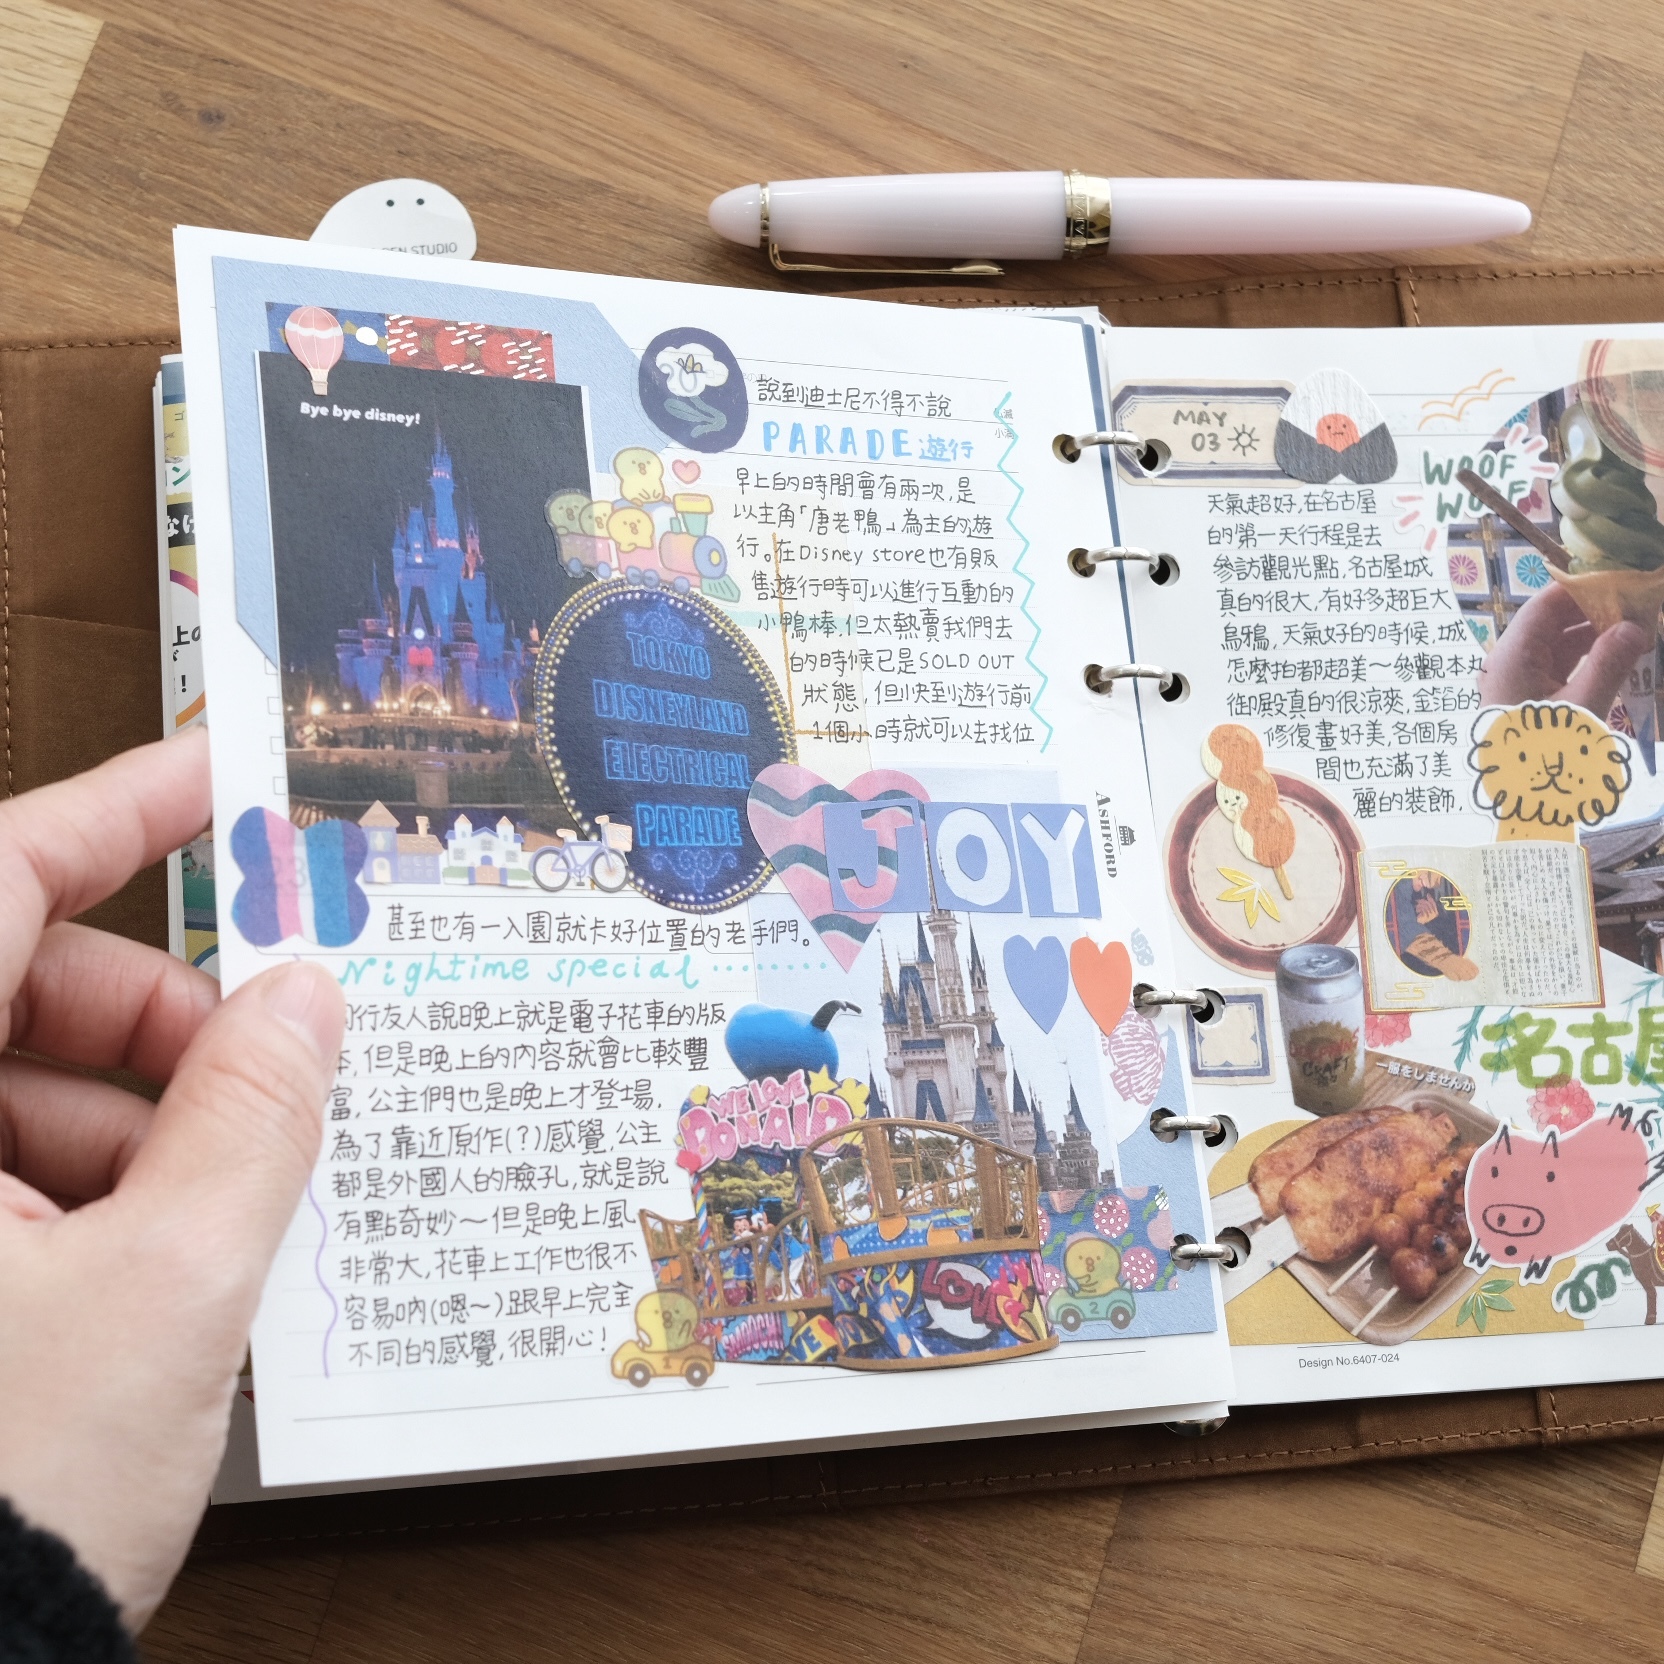 Bye bye disney!
說到迪士尼不得不說
PARADE 遊行
早上的時間會有兩次,是
以主角「唐老鴨」為主的遊
行。在Disney store也有販
售遊行時可以進行互動的
小鴨棒,但太熱賣我們去
的時候已是SOLD OUT
狀態,但小快到遊行前
1個小時就可以去找位
TOKYO
DISNEYLAND
ELECTRICAL
PARADE
JOY
甚至也有一入園就卡好位置的老手們。
Nightime special
行友人說晚上就是電子花車的版
本,但是晚上的內容就會比較豐
富,公主們也是晚上才登場,
為了靠近原作(?)感覺,公主
都是外國人的臉孔,就是說
有點奇妙~但是晚上風
非常大,花車上工作也很不
容易吶(嗯~)跟早上完全
不同的感覺,很開心!
WE LOVE
DONALD
LOVE
ASHFORD
MAY
03
WOOF
WOOF
天氣超好,在名古屋
的第一天行程是去
參訪觀光點,名古屋城
真的很大,有好多超巨大
烏鴉,天氣好的時候,城
怎麼拍都超美~參觀本丸
御殿真的很涼爽,金箔的
修復畫好美,各個房
間也充滿了美
麗的裝飾.
CRAFT
一服をしませんか
名古屋
Design No.6407-024
STUDIO